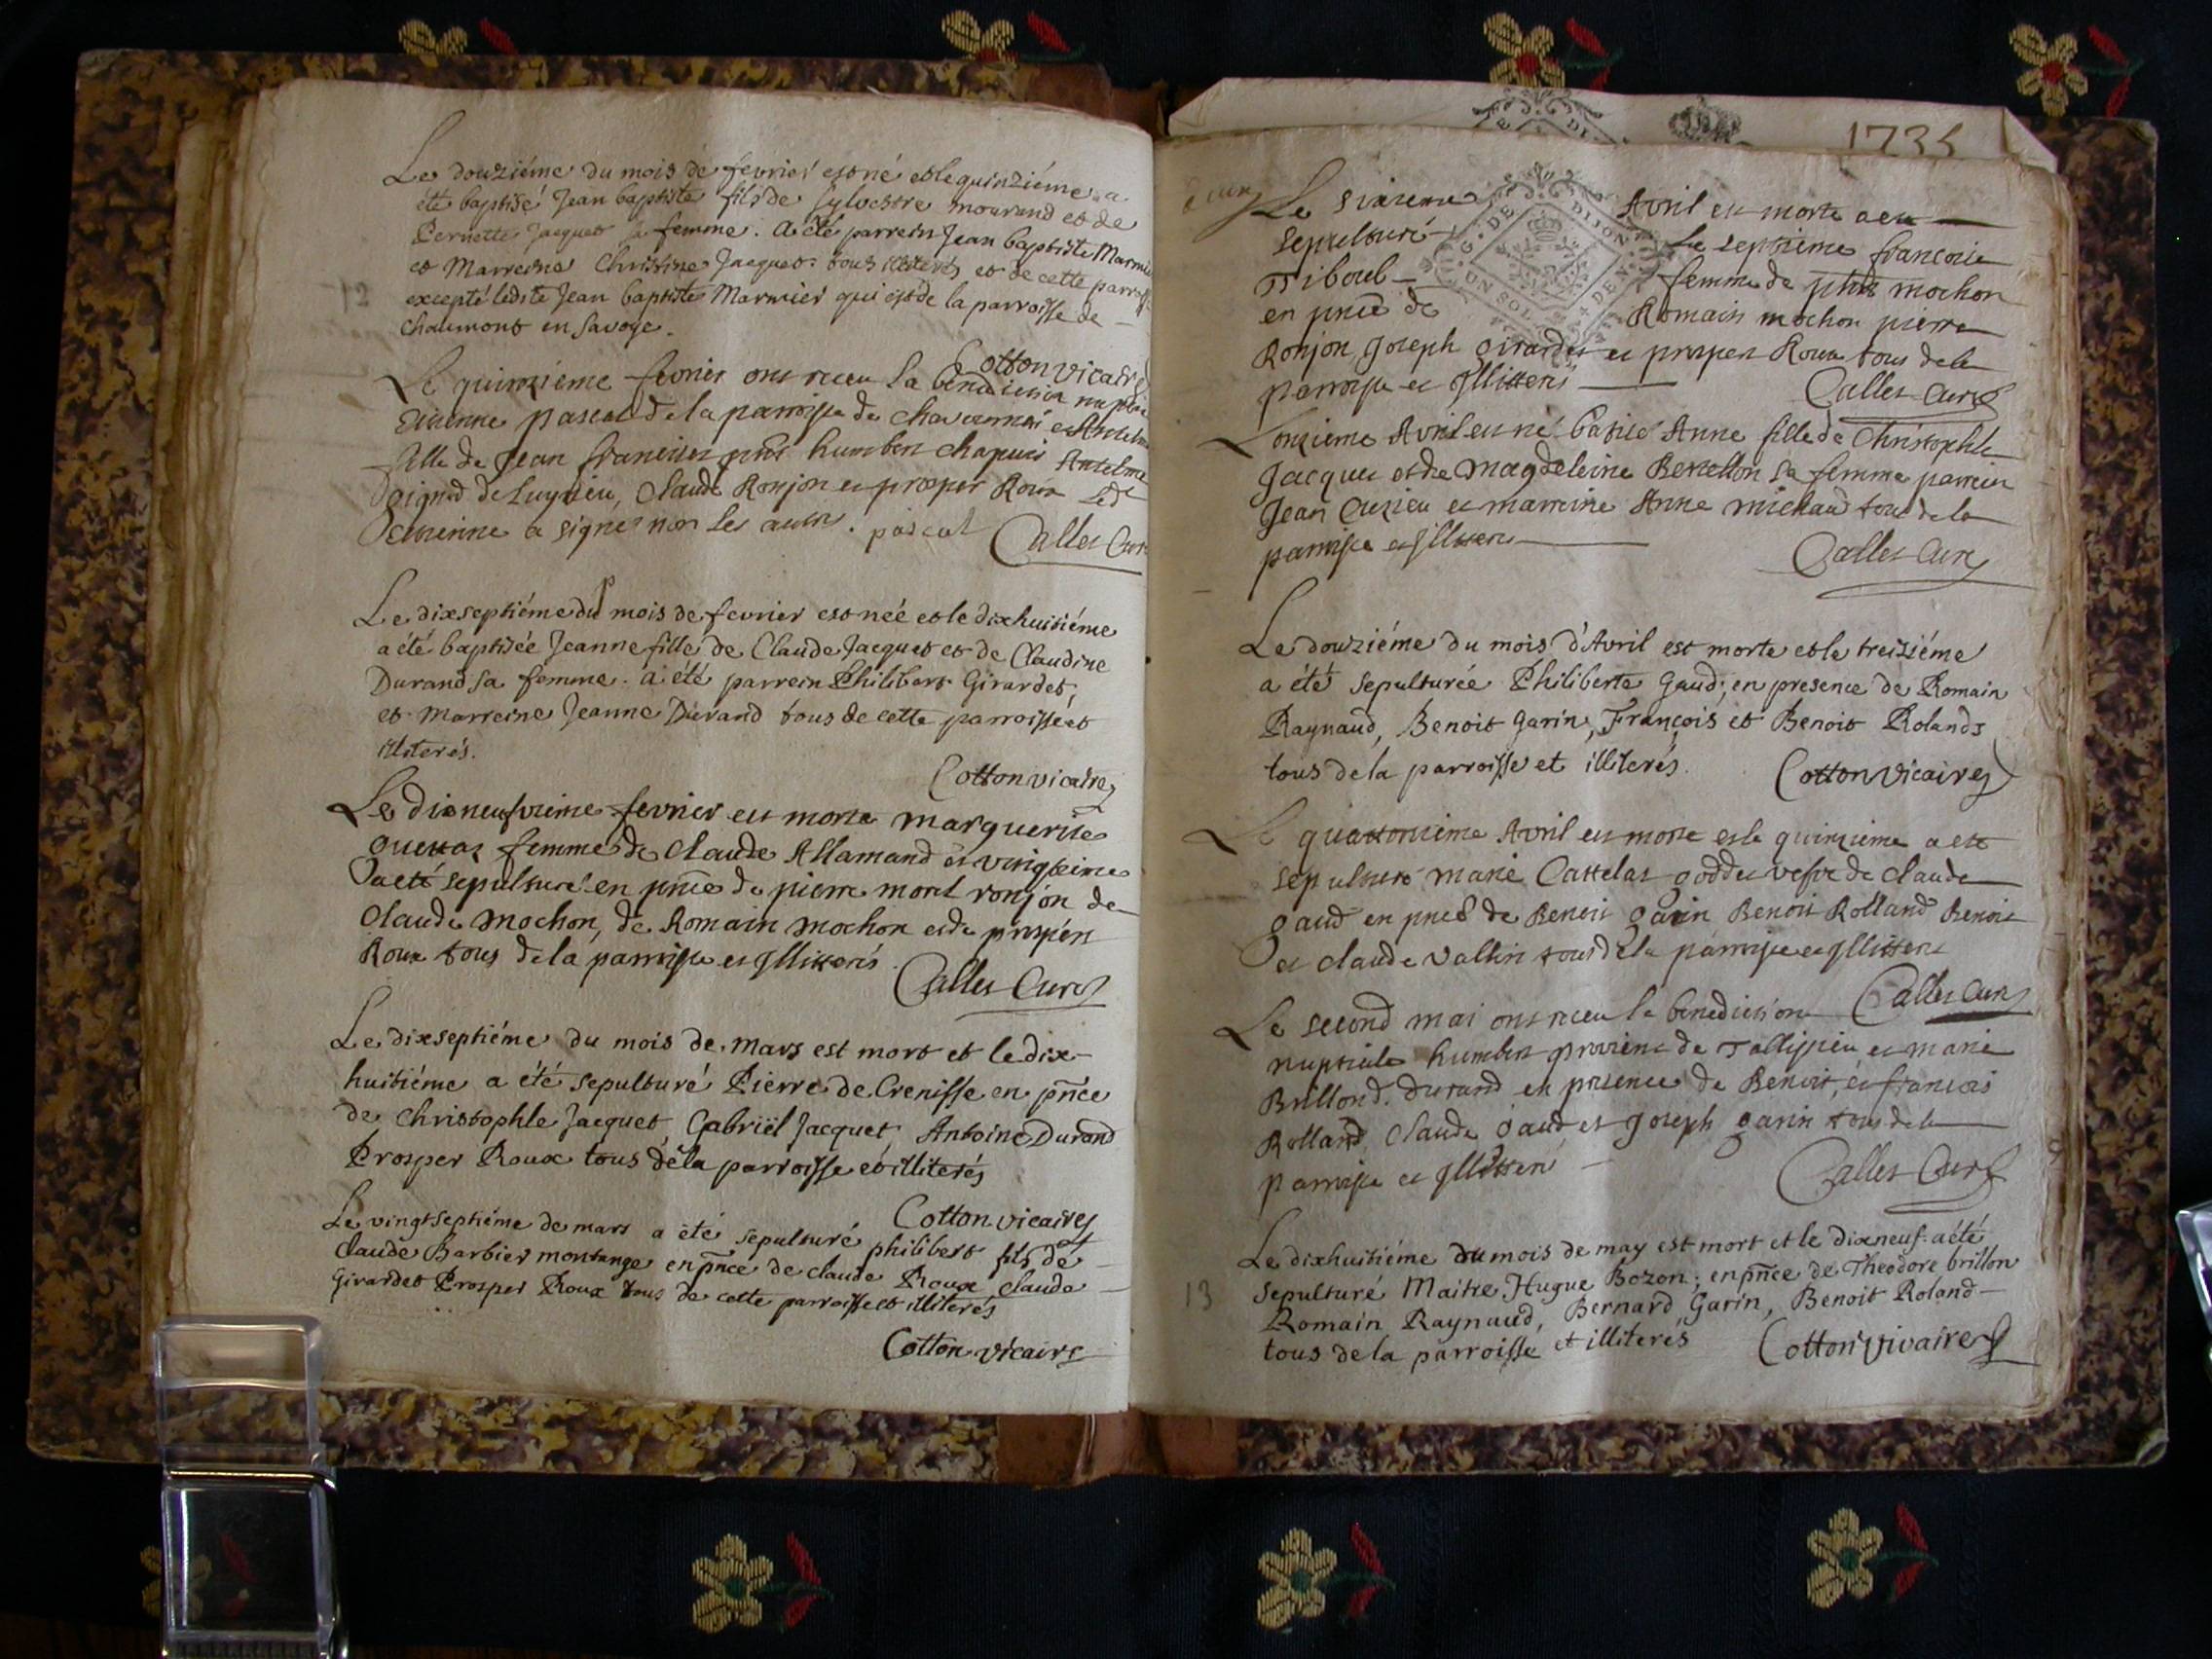 Le douziéme du mois de fevrier est né et le quinziéme a
été baptisé Jean baptiste fils de Sylvestre mourand et de
Pernette Jacquet sa femme. a été parrein Jean baptiste Marmier
et Marreine Christine Jacquet tous illiterés et de cette parroisse
excepté ledite Jean baptiste Marmier qui est de la parroisse de
chaumont en Savoye.
Cotton vicaire
Le quinzième fevrier ont receu la benediction nuptiale
Etienne pascal de la parroisse de et Anthelme
fille de Jean humbert chapuis Antelme
de Luyrieu, Claude Ronjon et prosper Roux
etienne a signé non les autres. pascal Calles Curé
Le dixseptiéme du mois de fevrier est née et le dixhuitiéme
a été baptisée Jeanne fille de Claude Jacquet et de Claudine
Durand sa femme. a été parrein Philibert Girardet,
et Marreine Jeanne Durand tous de cette parroisse et
illiterés.
Cotton vicaire
Le dixneufvieme fevrier est morte marguerite
femme de Claude Allamand et vingtieme
a eté sepulturé en pnce de pierre mont ronjon de
Claude mochon, de Romain mochon et de prosper
Roux tous de la parroisse et Illitterés
Calles Curé
Le dixseptiéme du mois de mars est mort et le dix-
huitiéme a été sepulturé Pierre de Crenisse en pnce
de Christophle Jacquet Gabriël Jacquet, Antoine Durand
Prosper Roux tous de la parroisse et illiterés
Cotton vicaire
Le vingtseptiéme de mars a été sepulturé philibert fils de
Claude Barbier montange en pnce de claude Roux, Claude
Girardet Prosper Roux tous de cette parroisse et illiterés
Cotton vicaire
1735
G. DE DIJON
UN SOL 4 DEN
Le sixieme Avril est morte a eté
sepulturé Le septieme francoise
Tiboul femme de mochon
en pnce de Romain mochon pierre
Ronjon Joseph Girardet et prosper Roux tous de la
parroisse et Illitterés
Calles Curé
Lonzieme Avril est né batisé Anne fille de Christophle
Jacques et de Magdeleine Berthellon sa femme parrein
Jean Cuzieu et marreine Anne michaud tous de la
parroisse et Illitterés
Calles Curé
Le douziéme du mois d'Avril est morte et le treiziéme
a été sepulturée Philiberte Gaud, en presence de Romain
Raynaud, Benoit Garin, François et Benoit Rolands
tous de la parroisse et illiterés. Cotton Vicaire
Le quattorzieme Avril est morte et le quinzieme a eté
sepulturé marie Cattelas goddet vefve de claude
gaud en pnce de Benoit garin Benoit Rolland Benoit
et claude Vallin tous de la parroisse et Illitterés
Calles Curé
Le second mai ont receu la benediction
nuptiale humbert de Tallissieu et marie
Brillond. Durand en presence de Benoit, et francois
Rolland, Claude gaud et Joseph garin tous de la
parroisse et Illitterés
Calles Curé
13
Le dixhuitiéme du mois de may est mort et le dixneuf a été
sepulturé Maitre Hugue Bozon; en pnce de Theodore brillon
Romain Raynaud, Bernard Garin, Benoit Roland
tous de la parroisse et illiterés Cotton Vivaire